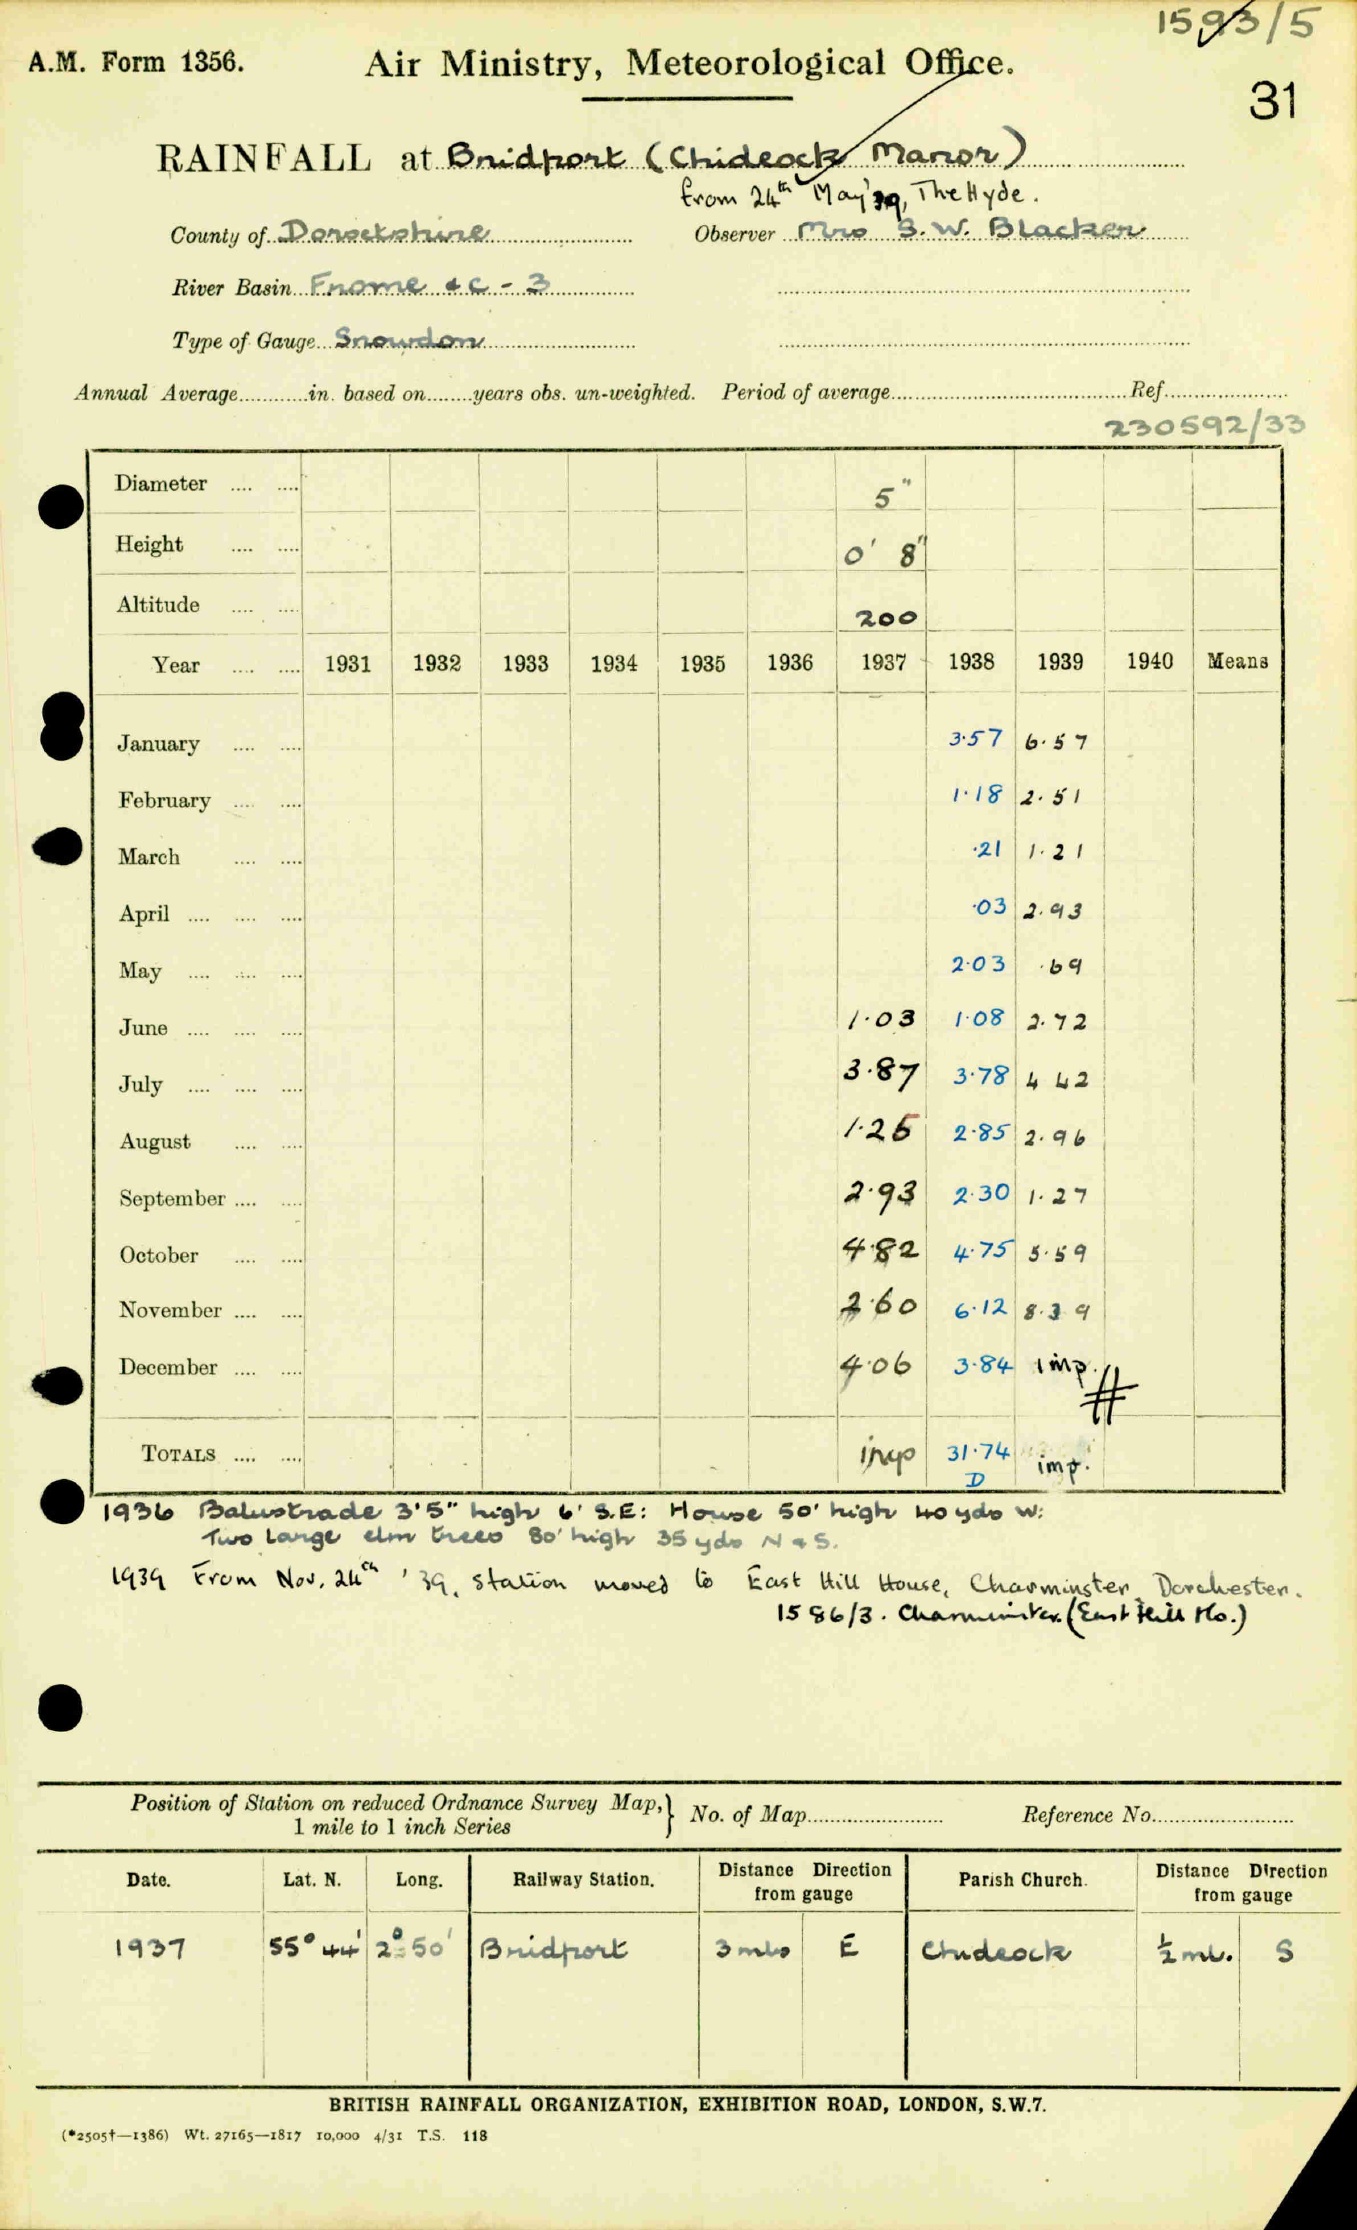 1593/5
A.M. Form 1356. Air Ministry, Meteorological Office.
31
RAINFALL at Bridport (Chideock Manor)
from 24th May '39, The Hyde.
County of Dorsetshire Observer Mrs S.W. Blacker
River Basin Frome &c - 3
Type of Gauge Snowdon
Annual Average............in. based on........years obs. un-weighted. Period of average.................... Ref....................
230592/33
Diameter .... .... 5"
Height .... .... 0' 8"
Altitude .... .... 200
Year .... .... 1931 1932 1933 1934 1935 1936 1937 1938 1939 1940 Means
January .... .... 3.57 6.57
February .... .... 1.18 2.51
March .... .... .21 1.21
April .... .... .... .03 2.93
May .... .... .... 2.03 .69
June .... .... .... 1.03 1.08 2.72
July .... .... .... 3.87 3.78 4 42
August .... .... 1.25 2.85 2.96
September .... .... 2.93 2.30 1.27
October .... .... 4.82 4.75 5.59
November .... .... 2.60 6.12 8.39
December .... .... 4.06 3.84 imp. #
TOTALS .... .... imp 31.74 imp.
D
1936 Balustrade 3'5" high 6' S.E: House 50' high 40 yds W:
Two large elm trees 80' high 35 yds N & S.
1939 From Nov. 24th '39, Station moved to East Hill House, Charminster, Dorchester.
1586/3. Charminster (East Hill Ho.)
Position of Station on reduced Ordnance Survey Map, } No. of Map........................ Reference No.........................
1 mile to 1 inch Series
Date. Lat. N. Long. Railway Station. Distance Direction from gauge Parish Church. Distance Direction from gauge
1937 55° 44' 2° 50' Bridport 3 mls E Chideock ½ ml. S
BRITISH RAINFALL ORGANIZATION, EXHIBITION ROAD, LONDON, S.W.7.
(*2505†—1386) Wt. 27165—1817 10,000 4/31 T.S. 118